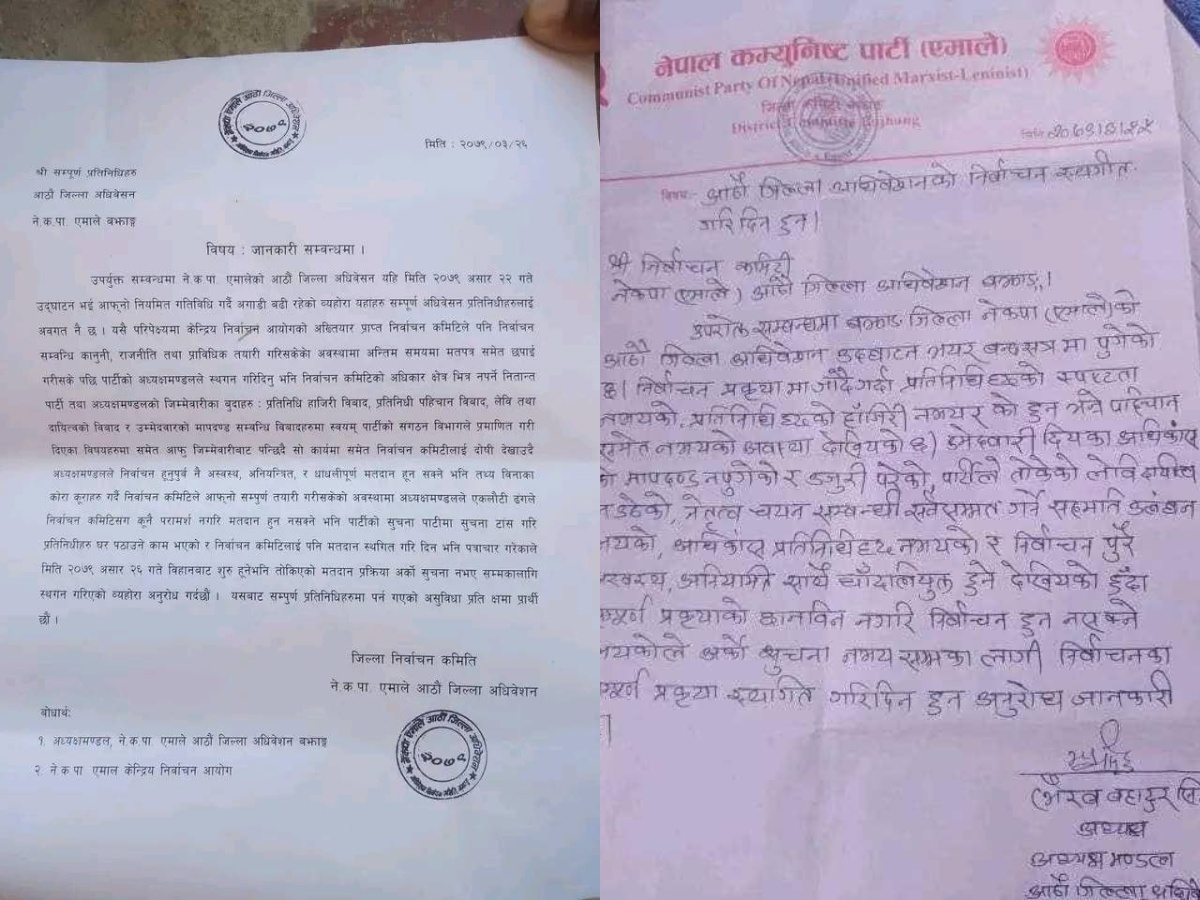 मिति : २०७९/०३/२६
श्री सम्पूर्ण प्रतिनिधिहरु
आठौ जिल्ला अधिवेसन
ने.क.पा. एमाले बझाङ्ग
विषय : जानकारी सम्बन्धमा ।
उपर्युक्त सम्बन्धमा ने.क.पा. एमालेको आठौं जिल्ला अधिवेसन यहि मिति २०७९ असार २२ गते
उद्घाटन भई आफ्नो नियमित गतिविधि गर्दै अगाडी बढी रहेको व्यहोरा यहाहरु सम्पूर्ण अधिवेसन प्रतिनीधीहरुलाई
अवगत नै छ । यसै परिपेक्ष्यमा केन्द्रिय निर्वाचन आयोगको अख्तियार प्राप्त निर्वाचन कमिटिले पनि निर्वाचन
सम्बन्धि कानुनी, राजनीति तथा प्राविधिक तयारी गरिसकेकेा अवस्थामा अन्तिम समयमा मतपत्र समेत छपाई
गरीसके पछि पार्टीको अध्यक्षमण्डलले स्थगन गरिदिनु भनि निर्वाचन कमिटिको अधिकार क्षेत्र भित्र नपर्ने नितान्त
पार्टी तथा अध्यक्षमण्डलको जिम्मेवारीका बुदाहरु : प्रतिनिधि हाजिरी विवाद, प्रतिनिधी पहिचान विवाद, लेवि तथा
दायित्वको विवाद र उम्मेदवारको मापदण्ड सम्बन्धि विवादहरुमा स्वयम् पार्टीको संगठन विभागले प्रमाणित गरी
दिएका विषयहरुमा समेत आफु जिम्मेवारीबाट पन्छिदै सो कार्यमा समेत निर्वाचन कमिटीलाई दोषी देखाउदै
अध्यक्षमण्डलले निर्वाचन हुनुपुर्व नै अस्वस्थ, अनियन्त्रित, र धाधलीपूर्ण मतदान हुन सक्ने भनि तथ्य विनाका
कोरा कूराहरु गर्दै निर्वाचन कमिटिले आफ्नो सम्पुर्ण तयारी गरीसकेको अवस्थामा अध्यक्षमण्डलले एकलौटी ढंगले
निर्वाचन कमिटिसग कूनै परामर्श नगरि मतदान हुन नसक्ने भनि पार्टीको सुचना पाटीमा सुचना टांस गरि
प्रतिनीधीहरु घर पठाउने काम भएको र निर्वाचन कमिटिलाई पनि मतदान स्थगित गरि दिन भनि पत्राचार गरेकाले
मिति २०७९ असार २६ गते विहानबाट शुरु हुनेभनि तोकिएको मतदान प्रक्रिया अर्को सुचना नभए सम्मकालागि
स्थगन गरिएको व्यहोरा अनुरोध गर्दछौं । यसबाट सम्पुर्ण प्रतिनिधिहरुमा पर्न गएको असुविधा प्रति क्षमा प्रार्थी
छौं ।
जिल्ला निर्वाचन कमिति
ने.क.पा. एमाले आठौ जिल्ला अधिवेशन
बोधार्थ:
१. अध्यक्षमण्डल, ने.क.पा. एमाले आठौ जिल्ला अधिवेशन बझाङ्ग
२. ने.क.पा. एमाल केन्द्रिय निर्वाचन आयोग
नेपाल कम्युनिष्ट पार्टी (एमाले)
Communist Party Of Nepal (Unified Marxist-Leninist)
District Committee Bajhang
विषय:- आठौ जिल्ला अधिवेशनको निर्वाचन स्थगीत
गरिदिन हुन।
श्री निर्वाचन कमिटी
नेकपा (एमाले) आठौं जिल्ला अधिवेशन बझाङ्ग।
उपरोक्त सम्बन्धमा बझाङ जिल्ला नेकपा (एमाले)को
आठौ जिल्ला अधिवेशन उदघाटन भयर बन्दसत्र मा पुगेको
छ। निर्वाचन प्रकृया मा जाँदै गर्दा प्रतिनिधिहरुको स्पष्टता
नभयको, प्रतिनिधिहरुको हाँजिरी नभयर को हुन भन्ने पहिचान
समेत नभयको अवस्था देखियको छ। उमेदवारी दियका अधिकांस
को मापदण्ड नपुगेको र उजुरी परेको, पार्टीले तोकेको लेवि दायित्व
न उठेको, नेतृत्व चयन सम्बन्धी सर्वसम्मत गर्ने सहमति उलंघन
भयको, अधिकांस प्रतिनिधिहरु नभयको र निर्वाचन पुरै
अस्वस्थ, अनियमित साथै धाँदलियुक्त हुने देखियको हुँदा
सम्पूर्ण प्रकृयाको छानविन नगरि निर्वाचन हुन नसक्ने
भयकोले अर्को सुचना नभय सम्मका लागी निर्वाचनका
सम्पूर्ण प्रकृया स्थागित गरिदिन हुन अनुरोध जानकारी
(भैरव बहादुर
अध्यक्ष
अध्यक्ष मण्डल
आठौं जिल्ला